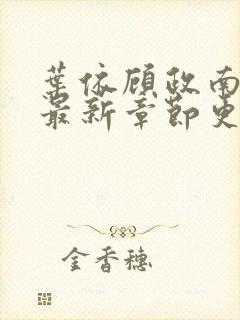 葉依顾政南
最新章節更
金香穗